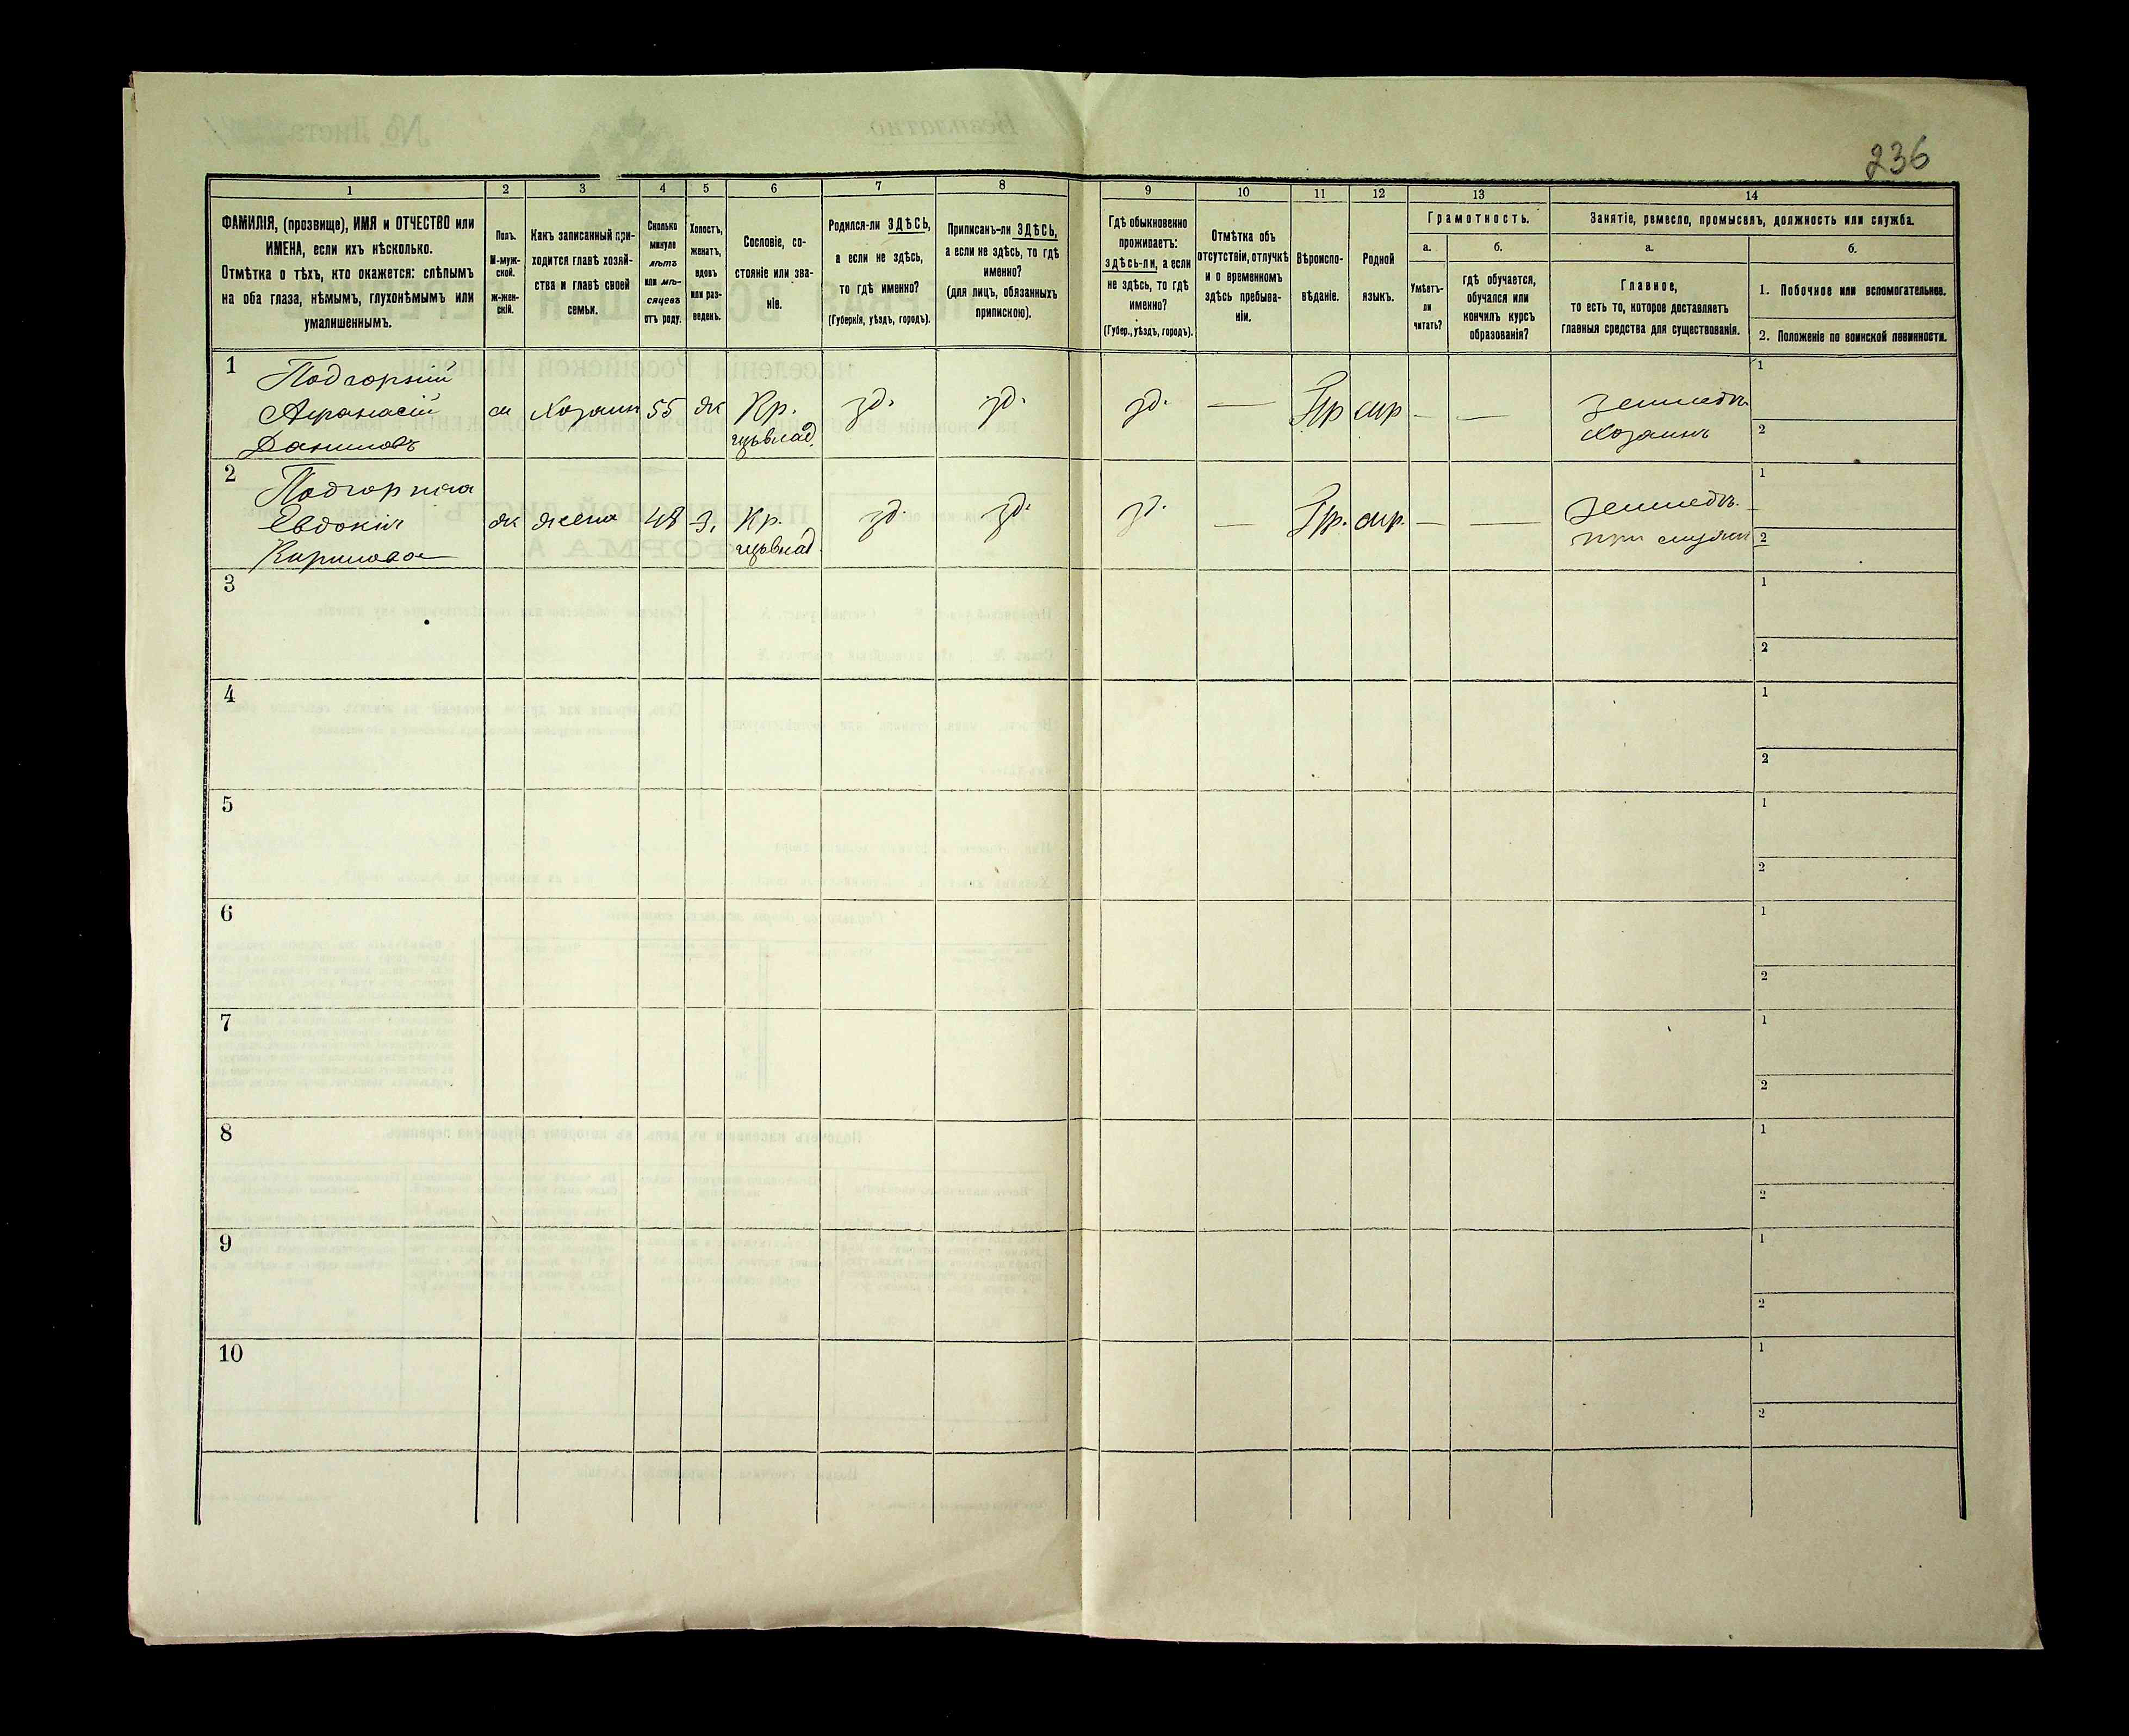 236
1
2
3
4
5
6
7
8
9
10
11
12
13
14
ФАМИЛІЯ, (прозвище), ИМЯ и ОТЧЕСТВО или
ИМЕНА, если ихъ нѣсколько.
Отмѣтка о тѣхъ, кто окажется: слѣпымъ
на оба глаза, нѣмымъ, глухонѣмымъ или
умалишеннымъ.
Полъ.
М-муж-
ской.
ж-жен-
скій.
Какъ записанный при-
ходится главѣ хозяй-
ства и главѣ своей
семьи.
Сколько
минуло
лѣтъ
или мѣ-
сяцевъ
отъ роду.
Холостъ,
женатъ,
вдовъ
или раз-
веденъ.
Сословіе, со-
стояніе или зва-
ніе.
Родился-ли ЗДѢСЬ,
а если не здѣсь,
то гдѣ именно?
(Губернія, уѣздъ, городъ).
Приписанъ-ли ЗДѢСЬ,
а если не здѣсь, то гдѣ
именно?
(для лицъ, обязанныхъ
припискою).
Гдѣ обыкновенно
проживаетъ:
здѣсь-ли, а если
не здѣсь, то гдѣ
именно?
(Губер., уѣздъ, городъ).
Отмѣтка объ
отсутствіи, отлучкѣ
и о временномъ
здѣсь пребыва-
ніи.
Вѣроиспо-
вѣданіе.
Родной
языкъ.
Грамотность.
а.
Умѣетъ-
ли
читать?
б.
гдѣ обучается,
обучался или
кончилъ курсъ
образованія?
Занятіе, ремесло, промыселъ, должность или служба.
а.
Главное,
то есть то, которое доставляетъ
главныя средства для существованія.
б.
1. Побочное или вспомогательное.
2. Положеніе по воинской повинности.
1
Подгорній
Афанасій
Даниловъ
м
Хозяин
55
ж
Кр.
зд.
зд.
зд.
—
Пр
мр
—
—
землед.
Хозяинъ
1
2
2
Подгорная
Евдокія
Кирилова
ж
жена
48
з.
Кр.
зд.
зд.
зд.
—
Пр.
мр.
—
—
землед.
при мужи
1
2
3
1
2
4
1
2
5
1
2
6
1
2
7
1
2
8
1
2
9
1
2
10
1
2